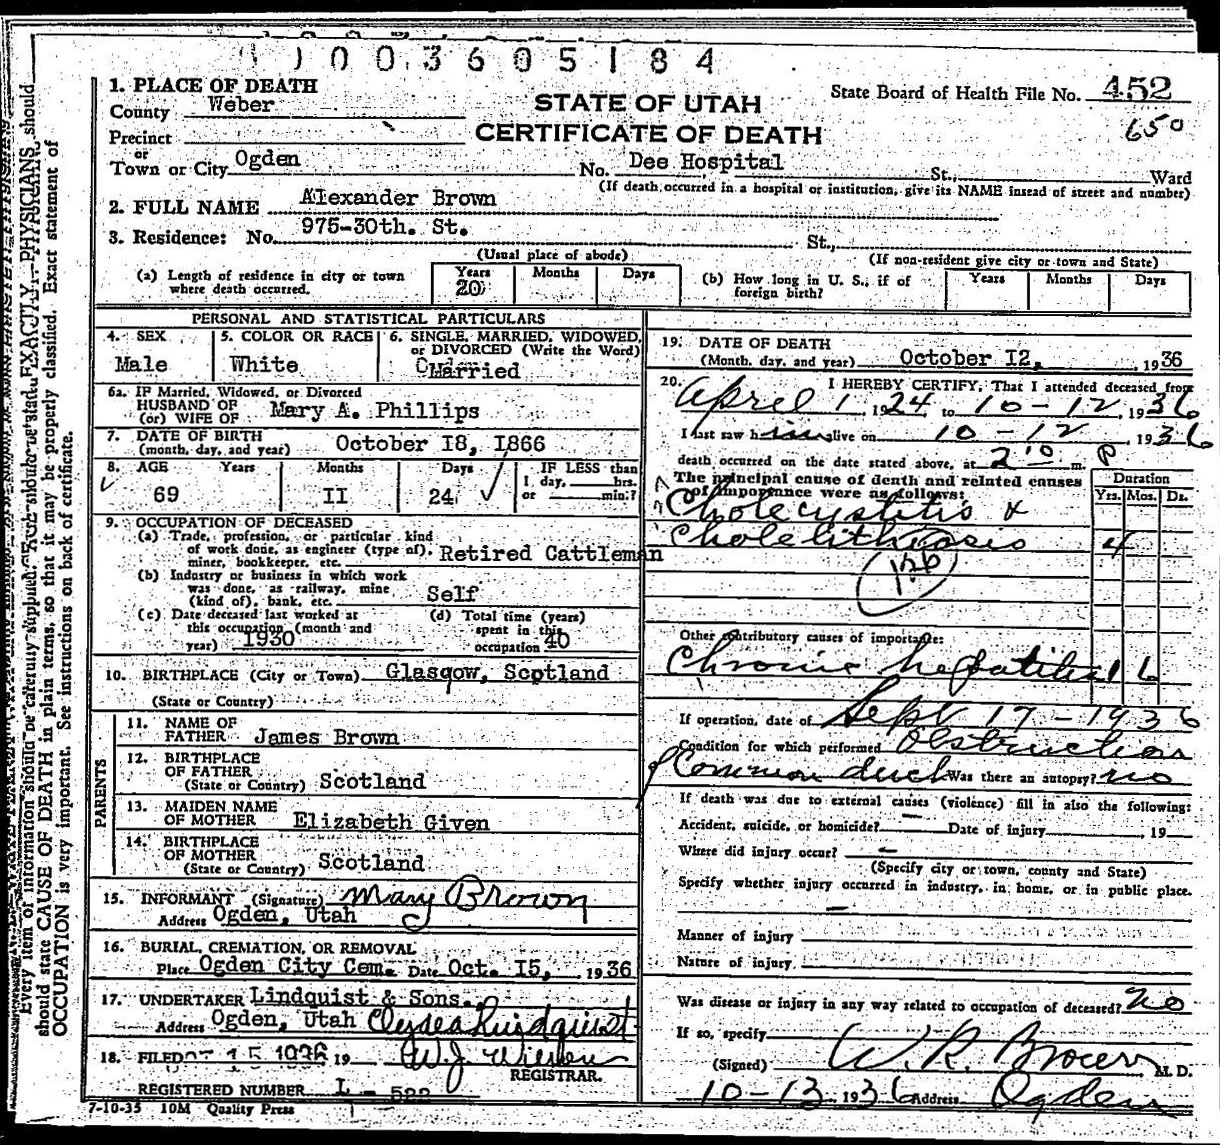 1003605184
1. PLACE OF DEATH
County Weber
Precinct
or
Town or City Ogden
STATE OF UTAH
CERTIFICATE OF DEATH
State Board of Health File No. 452
650
No. Dee Hospital St., Ward
(If death occurred in a hospital or institution, give its NAME insead of street and number)
2. FULL NAME Alexander Brown
3. Residence: No. 975-30th. St. St.,
(Usual place of abode)
(If non-resident give city or town and State)
(a) Length of residence in city or town where death occurred. Years 20 Months Days
(b) How long in U. S., if of foreign birth? Years Months Days
PERSONAL AND STATISTICAL PARTICULARS
4. SEX
Male
5. COLOR OR RACE
White
6. SINGLE, MARRIED, WIDOWED, or DIVORCED (Write the Word)
Married
6a. IF Married, Widowed, or Divorced
HUSBAND OF
(or) WIFE OF Mary A. Phillips
7. DATE OF BIRTH
(month, day, and year) October I8, I866
8. AGE Years Months Days IF LESS than
1 day, hrs.
or min.?
69 II 24
9. OCCUPATION OF DECEASED
(a) Trade, profession, or particular kind
of work done, as engineer (type of),
miner, bookkeeper, etc. Retired Cattleman
(b) Industry or business in which work
was done, as railway, mine
(kind of), bank, etc. Self
(c) Date deceased last worked at
this occupation (month and
year) 1930
(d) Total time (years)
spent in this
occupation 40
10. BIRTHPLACE (City or Town) Glasgow, Scotland
(State or Country)
PARENTS
11. NAME OF
FATHER James Brown
12. BIRTHPLACE
OF FATHER
(State or Country) Scotland
13. MAIDEN NAME
OF MOTHER Elizabeth Given
14. BIRTHPLACE
OF MOTHER
(State or Country) Scotland
15. INFORMANT (Signature) Mary Brown
Address Ogden, Utah
16. BURIAL, CREMATION, OR REMOVAL
Place Ogden City Cem. Date Oct. I5, 1936
17. UNDERTAKER Lindquist & Sons.
Address Ogden, Utah
18. FILED 15 1936 19
REGISTRAR.
REGISTERED NUMBER L - 522
7-10-35 10M Quality Press
19. DATE OF DEATH
(Month, day, and year) October I2, 1936
20. I HEREBY CERTIFY, That I attended deceased from
April 1, 1924 to 10-12, 1936
I last saw him alive on 10-12, 1936
death occurred on the date stated above, at 2:10 P m.
The principal cause of death and related causes
of importance were as follows:
Duration
Yrs. Mos. Ds.
Cholecystitis &
Cholelithiasis 4
126
Other contributory causes of importance:
Chronic hepatitis 1 6
If operation, date of Sept 17-1936
Condition for which performed Obstruction
of Common duct Was there an autopsy? no
If death was due to external causes (violence) fill in also the following:
Accident, suicide, or homicide? — Date of injury 19
Where did injury occur? —
(Specify city or town, county and State)
Specify whether injury occurred in industry, in home, or in public place.
—
Manner of injury
Nature of injury
Was disease or injury in any way related to occupation of deceased? No
If so, specify
(Signed) W. R. Brown M. D.
10-13 1936 Address Ogden
Every item of information should be carefully supplied. AGE should be stated EXACTLY. PHYSICIANS should
should state CAUSE OF DEATH in plain terms, so that it may be properly classified. Exact statement of
OCCUPATION is very important. See instructions on back of certificate.